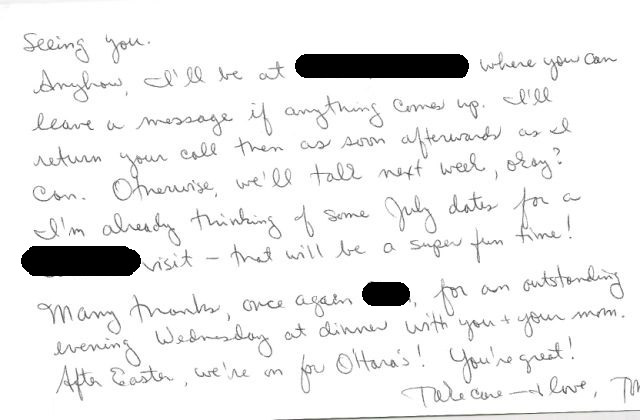 Seeing you.
Anyhow, I'll be at where you can
leave a message if anything comes up. I'll
return your call then as soon afterwards as I
can. Otherwise, we'll talk next week, okay?
I'm already thinking of some July dates for a
visit – that will be a super fun time!
Many thanks, once again , for an outstanding
evening Wednesday at dinner with you + your mom.
After Easter, we're on for O'Hara's! You're great!
Take care – I love,